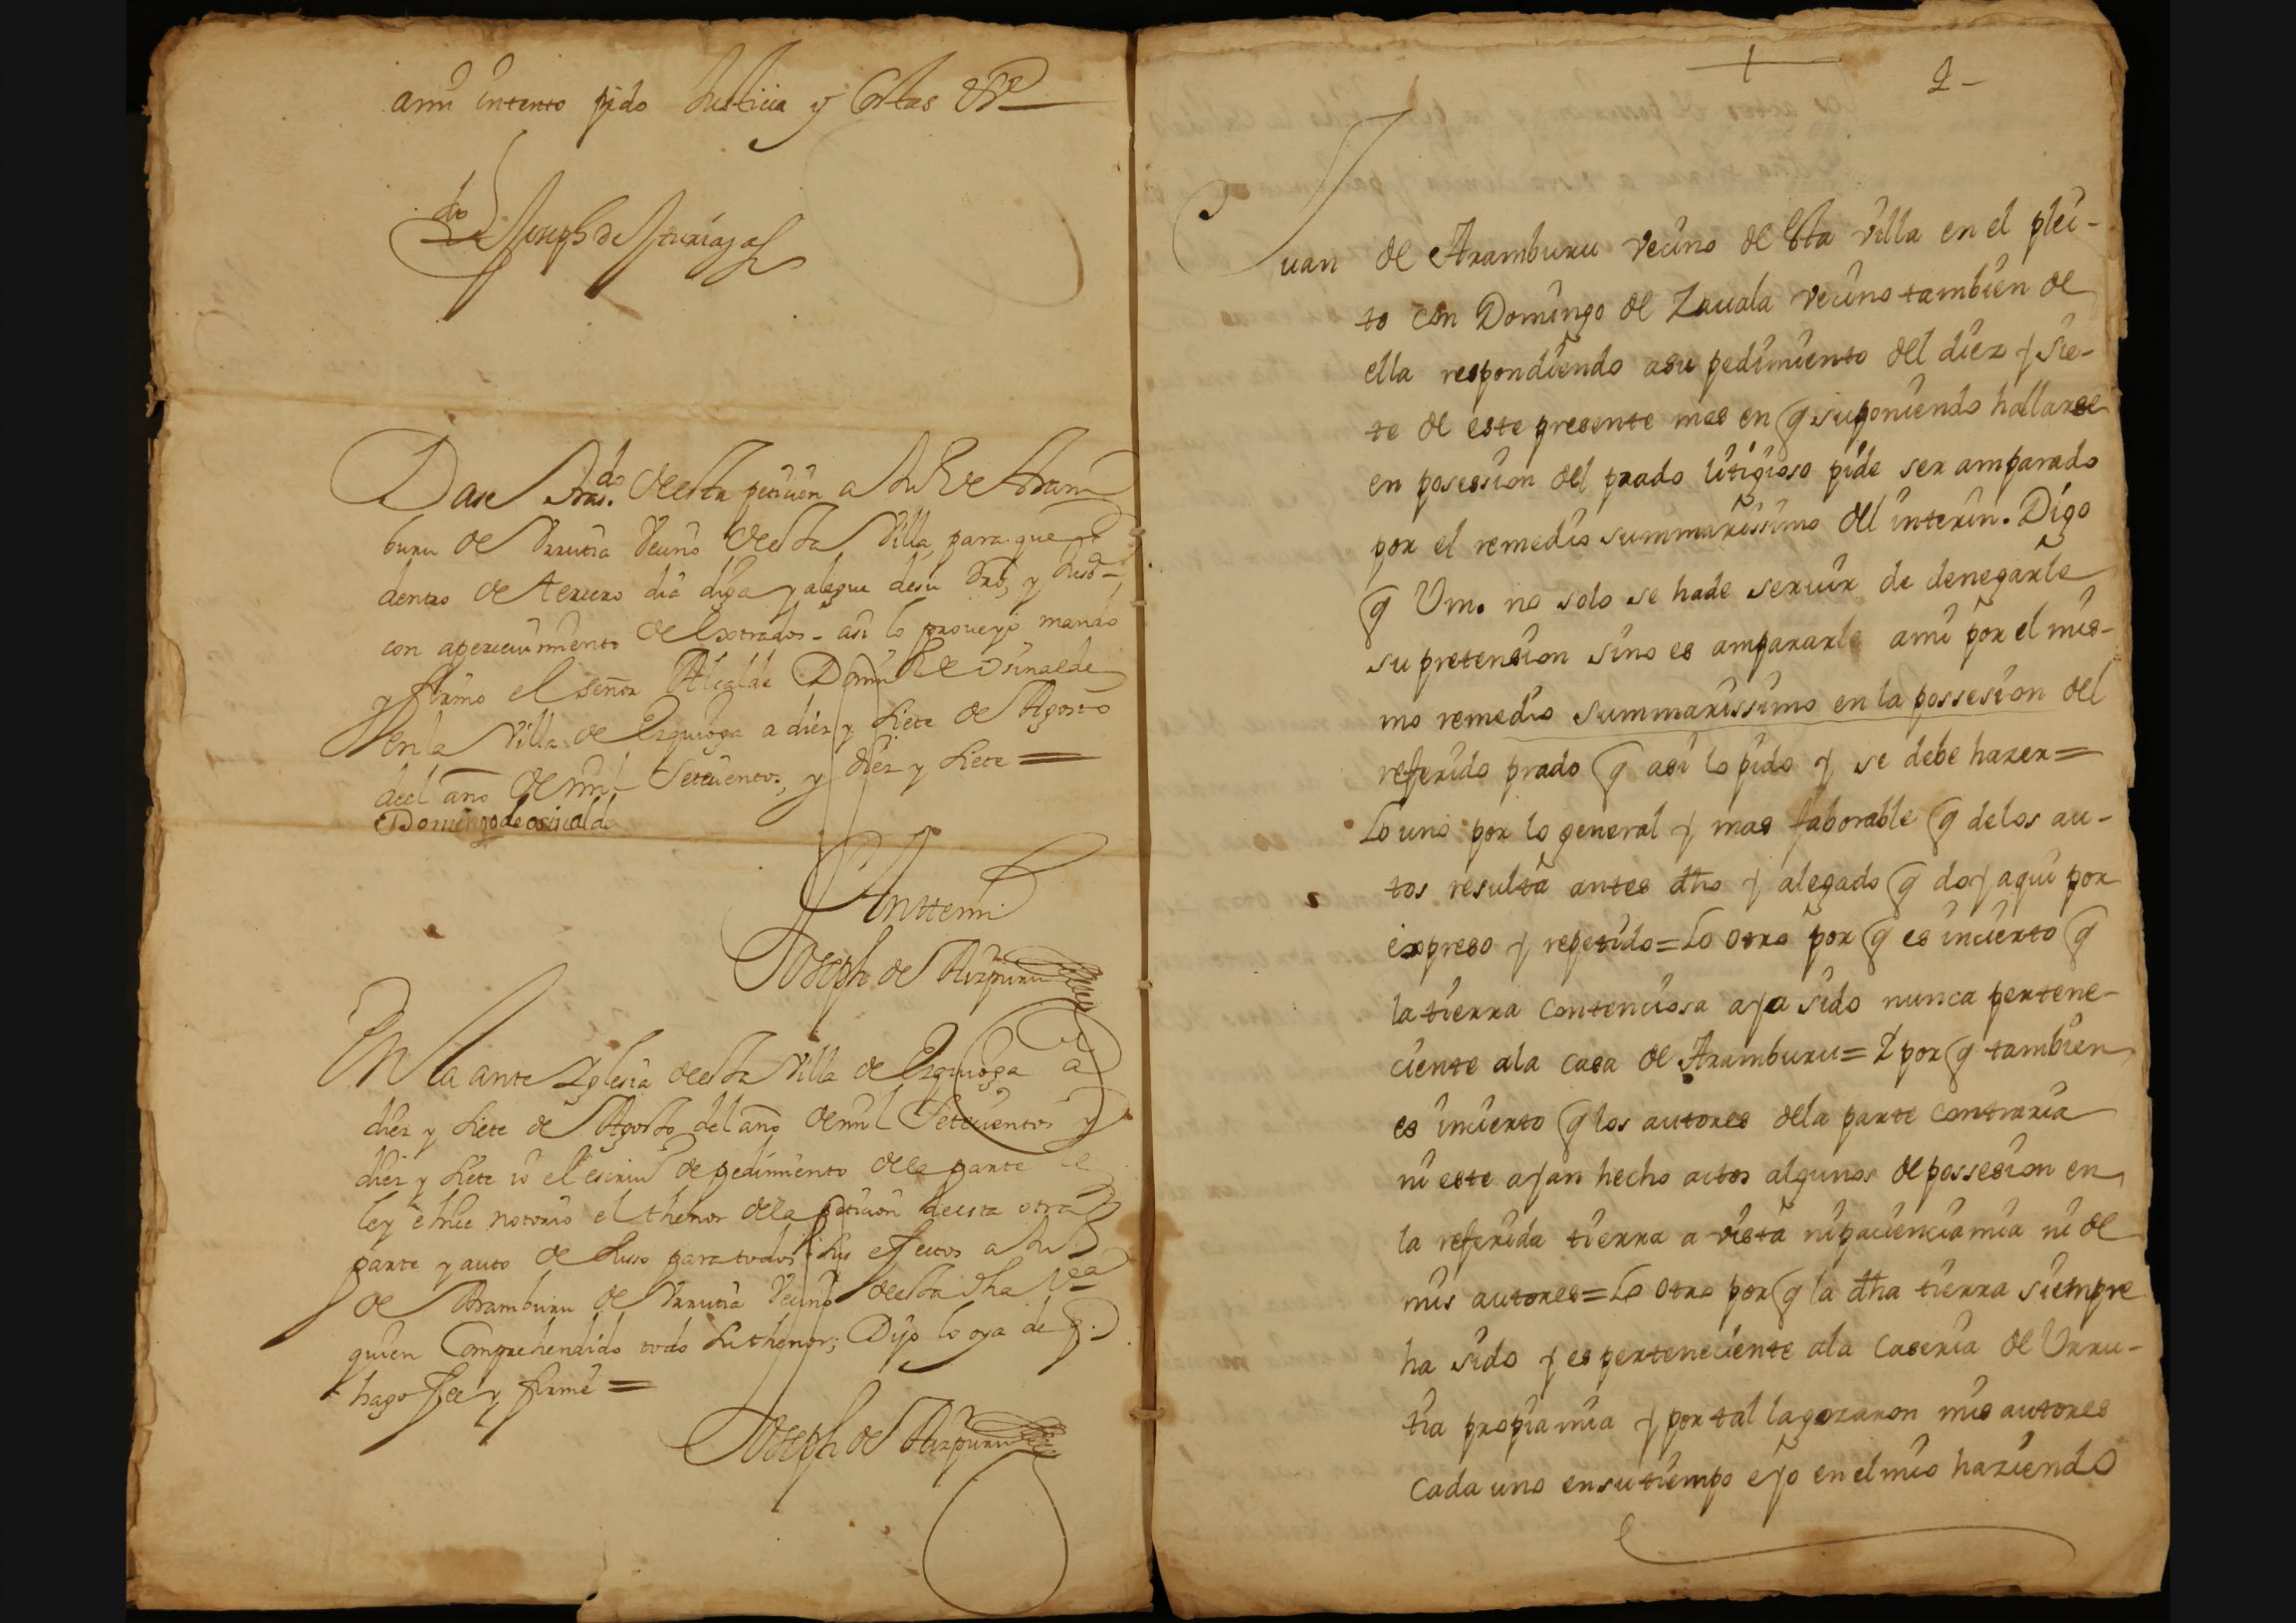 ami intento pido Justicia y Costas &ª
Ldo Joseph de Yturriaga
Dase trasdo. de esta peticion a Ju de Aram
buru de Urrutia vecino de esta Villa, para que
dentro de tercero dia diga y alegue desu dro, y Justª
con aperciuimiento de estrados - asi lo proueyo mando
y firmo el señor Alcalde Domº de osinalde
en la Villa de Ezquioga a diez y siete de Agosto
deel año de mil Setecientos, y diez y siete =
Domingo de osinalde
Anttemi
Joseph de Aizpuru
En la ante Iglesia de esta Villa de Ezquioga a
diez y siete de Agosto del año de mil Setecientos y
diez y siete io el escriuº de pedimiento de la parte
ley e hice notorio el thenor de la peticion de esta otra
parte y auto de suso para todos sus efectos a Ju
de Aramburu de Urrutia Vecino de esta dha Vª
quien Comprehendido todo su thenor; Dijo lo oya de q.
hago fee y firmé =
Joseph de Aizpuru
2-
Juan de Aramburu vecino de Esta villa en el plei-
to con Domingo de Zauala vecino tambien de
ella respondiendo asu pedimiento del diez y sie-
te de este presente mes en q suponiendo hallarse
en posession del prado litigioso pide ser amparado
por el remedio summarissimo del interin. Digo
q Vm. no solo se hade seruir de denegarle
su pretension sino es ampararle ami por el mis-
mo remedio summarissimo en la possesion del
referido prado q asi lo pido y se debe hazer=
Lo uno por lo general y mas faborable q delos au-
tos resulta antes dho y alegado q doy aqui por
expreso y repetido=Lo otro por q es incierto q
la tierra contenciosa aya sido nunca pertene-
ciente ala casa de Aramburu= Y por q tambien
es incierto q los autores dela parte contraria
ni este ayan hecho actos algunos de possesion en
la referida tierra a vista ni paciencia mia ni de
mis autores=Lo otro por q la dha tierra siempre
ha sido y es perteneciente ala Caseria de Urru-
tia propia mia y por tal la gozaron mis autores
Cada uno en su tiempo e yo en el mio haziendo